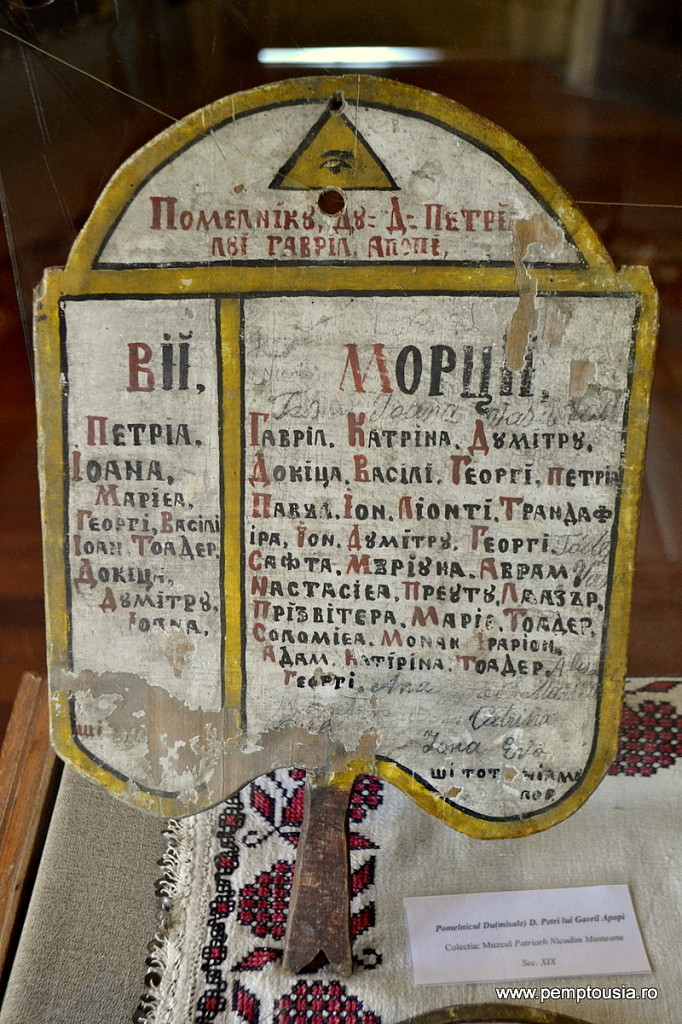 Помелникꙋ, Дꙋ= Д= Петрї
лꙋї гаврїл, апопї,
Вїй,
Петрїа.
Їоана,
Марїєа,
Георгї, Васїлї
Їоан. Тоадер,
Докїца,
Дꙋмїтрꙋ,
Їоана,
ші
Морцїй,
Ioana
Гаврїл. Катрїна. Дꙋмїтрꙋ,
Докїца. Васїлї. Георгї, петрїа
Павꙋл. Їон. Лїонтї. Трандаф
їра, Їон. Дꙋмїтрꙋ. Георгї.
Сафта. Мърїꙋна. Аврам
Настасїєа, Преꙋтꙋ, Лазър,
Прїзвїтера. Марїє. Тоадер,
Соломїєа. Монах Їларїон,
Адам. Катїрїна. Тоадер.
Георгї. Ana
Catrina
Iona Evo
ші тот нїамꙋ
лор.
Pomelnicul Du(misale) D. Petri lui Gavril Apopi
Colectia: Muzeul Patriarh Nicodim Munteanu
Sec. XIX
www.pemptousia.ro